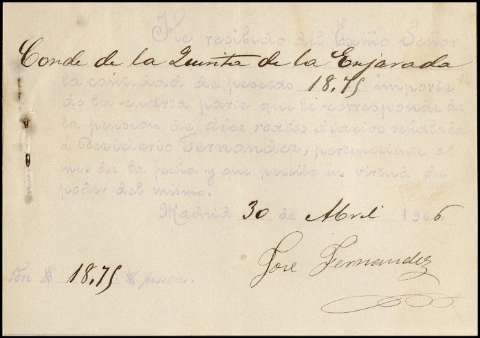 He recibido del Exmo Señor
Conde de la Quinta de la Enjarada
la cantidad de pesetas 18,75 importe
de la cuarta parte que le corresponde de
la pension de diez reales diarios
á Desiderio Fernandez, perteneciente al
mes de la fecha y que percibo en virtud de
poder del mismo.
Madrid 30 de Abril 1906
José Fernandez
Son # 18,75 # pesetas.